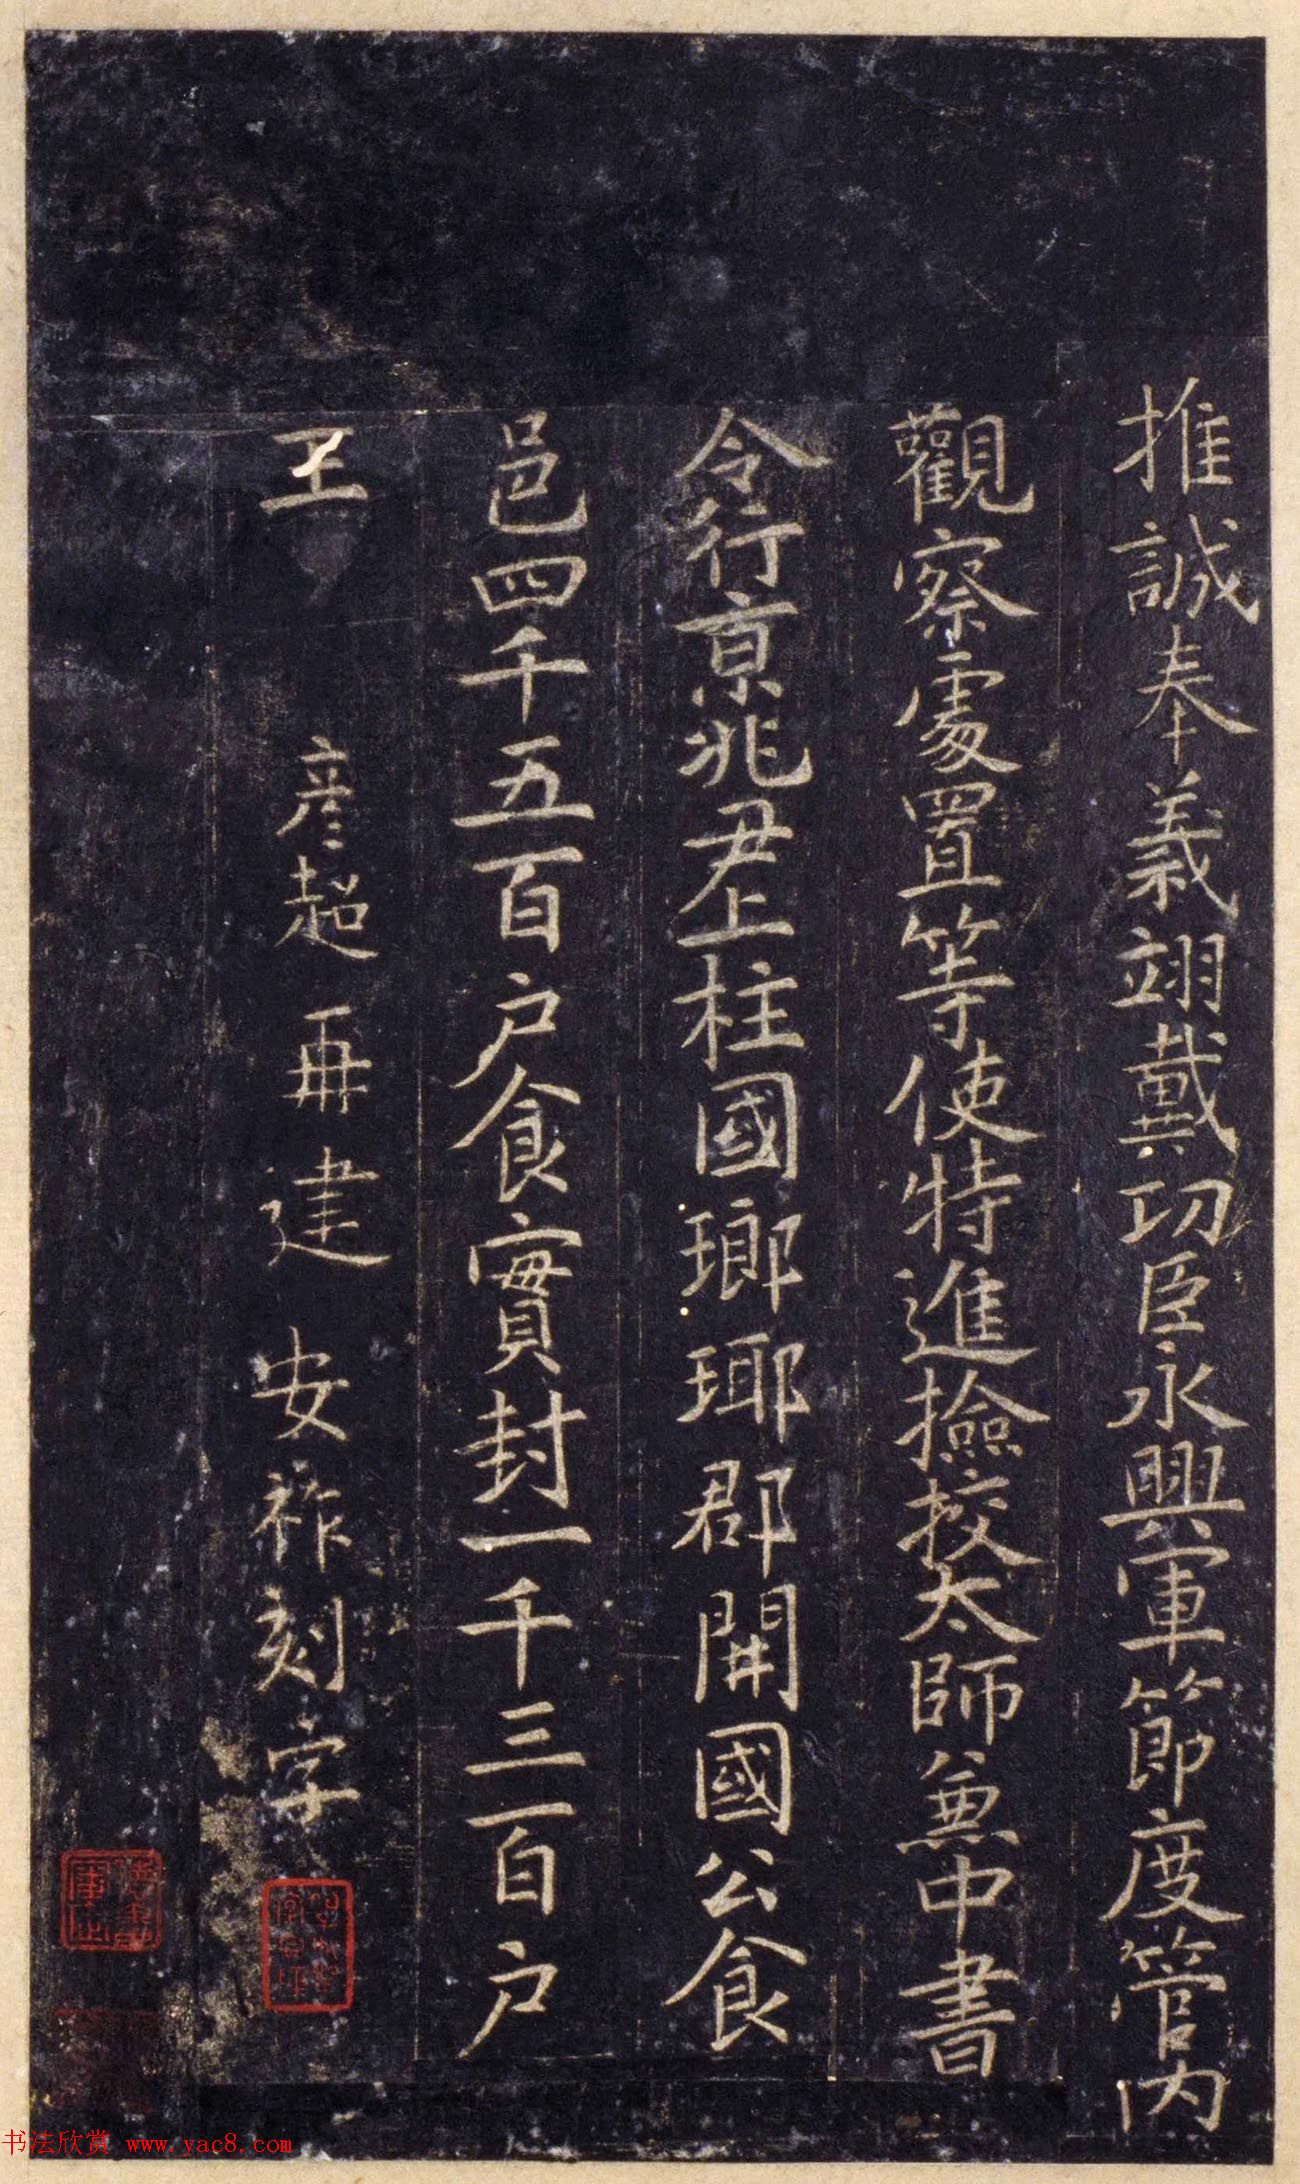 推誠奉義翊戴功臣永興軍節度管内
觀察處置等使特進撿挍太師兼中書
令行京兆尹上柱國瑯琊郡開國公食
邑四千五百户食實封一千三百户
王彦超再建 安祚刻字
书法欣赏 www.yac8.com